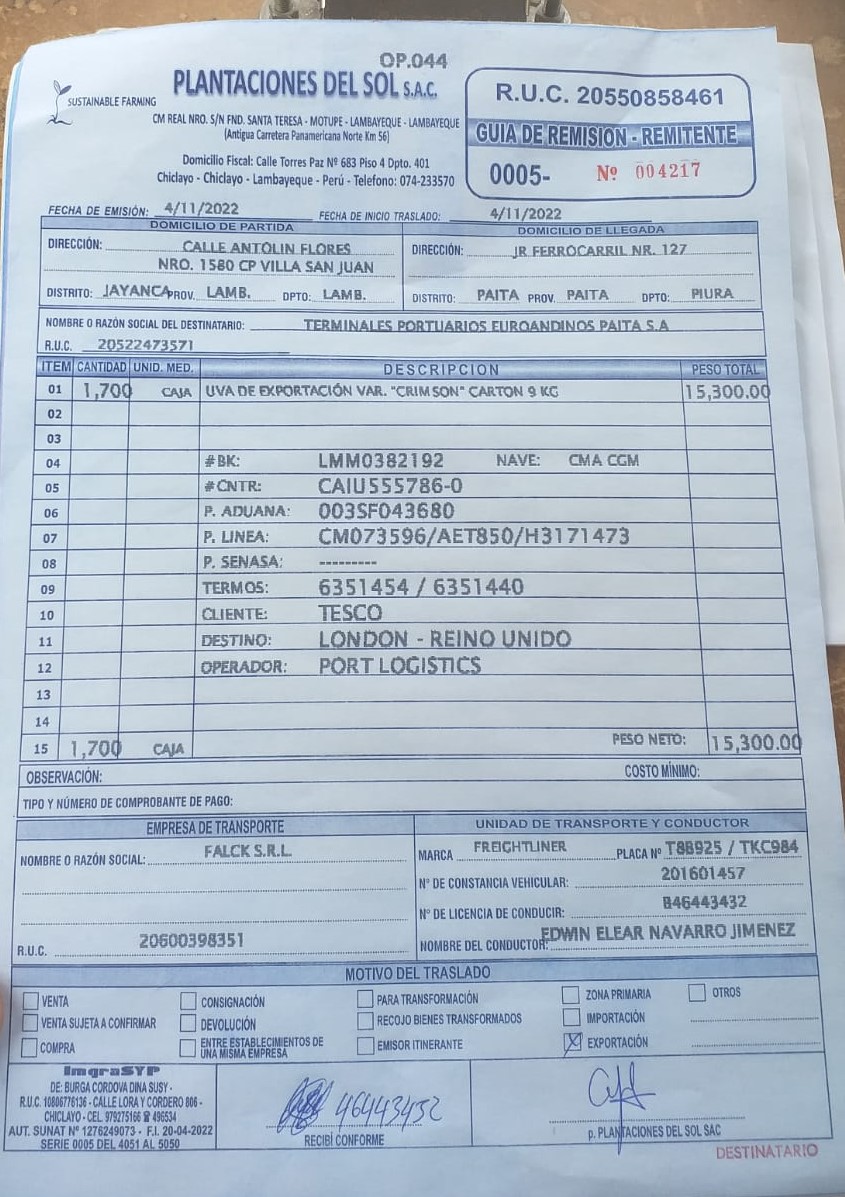 OP.044
SUSTAINABLE FARMING
PLANTACIONES DEL SOL S.A.C.
CM REAL NRO. S/N FND. SANTA TERESA - MOTUPE - LAMBAYEQUE - LAMBAYEQUE
(Antigua Carretera Panamericana Norte Km 56)
Domicilio Fiscal: Calle Torres Paz Nº 683 Piso 4 Dpto. 401
Chiclayo - Chiclayo - Lambayeque - Perú - Telefono: 074-233570
R.U.C. 20550858461
GUIA DE REMISION - REMITENTE
0005- Nº 004217
FECHA DE EMISIÓN: 4/11/2022 FECHA DE INICIO TRASLADO: 4/11/2022
DOMICILIO DE PARTIDA
DIRECCIÓN: CALLE ANTOLIN FLORES
NRO. 1580 CP VILLA SAN JUAN
DISTRITO: JAYANCA PROV. LAMB. DPTO: LAMB.
DOMICILIO DE LLEGADA
DIRECCIÓN: JR FERROCARRIL NR. 127
DISTRITO: PAITA PROV. PAITA DPTO: PIURA
NOMBRE O RAZÓN SOCIAL DEL DESTINATARIO: TERMINALES PORTUARIOS EUROANDINOS PAITA S.A
R.U.C. 20522473571
ITEM CANTIDAD UNID. MED. DESCRIPCION PESO TOTAL
01 1,700 CAJA UVA DE EXPORTACIÓN VAR. "CRIMSON" CARTON 9 KG 15,300.00
02
03
04 #BK: LMM0382192 NAVE: CMA CGM
05 #CNTR: CAIU555786-0
06 P. ADUANA: 003SF043680
07 P. LINEA: CM073596/AET850/H3171473
08 P. SENASA: ---------
09 TERMOS: 6351454 / 6351440
10 CLIENTE: TESCO
11 DESTINO: LONDON - REINO UNIDO
12 OPERADOR: PORT LOGISTICS
13
14
15 1,700 CAJA PESO NETO: 15,300.00
OBSERVACIÓN: COSTO MÍNIMO:
TIPO Y NÚMERO DE COMPROBANTE DE PAGO:
EMPRESA DE TRANSPORTE
NOMBRE O RAZÓN SOCIAL: FALCK S.R.L.
R.U.C. 20600398351
UNIDAD DE TRANSPORTE Y CONDUCTOR
MARCA FREIGHTLINER PLACA Nº T8B925 / TKC984
Nº DE CONSTANCIA VEHICULAR: 201601457
Nº DE LICENCIA DE CONDUCIR: B46443432
NOMBRE DEL CONDUCTOR: EDWIN ELEAR NAVARRO JIMENEZ
MOTIVO DEL TRASLADO
VENTA CONSIGNACIÓN PARA TRANSFORMACIÓN ZONA PRIMARIA OTROS
VENTA SUJETA A CONFIRMAR DEVOLUCIÓN RECOJO BIENES TRANSFORMADOS IMPORTACIÓN
COMPRA ENTRE ESTABLECIMIENTOS DE UNA MISMA EMPRESA EMISOR ITINERANTE X EXPORTACIÓN
ImgraSYP
DE: BURGA CORDOVA DINA SUSY -
R.U.C. 10806776136 - CALLE LORA Y CORDERO 806 -
CHICLAYO - CEL. 979275166 ☎ 496534
AUT. SUNAT Nº 1276249073 - F.I. 20-04-2022
SERIE 0005 DEL 4051 AL 5050
46443432
RECIBÍ CONFORME
p. PLANTACIONES DEL SOL SAC
DESTINATARIO